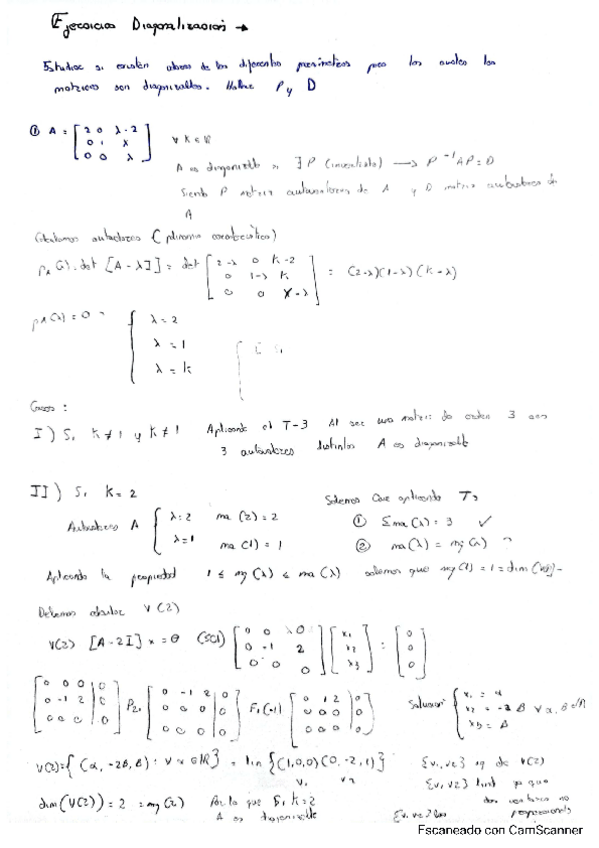 Ejercicios Diagonalización →
Estudiar si existen valores de los diferentes parámetros para los cuales las
matrices son diagonizables. Hallar P y D
① A = [ 2 0 λ-2 ; 0 1 λ ; 0 0 λ ] ∀ K ∈ ℝ
A es diagonizable si ∃ P (invertible) → P⁻¹AP = D
Siendo P matriz autovalores de A y D matriz autovalores de
A
Calculamos autovalores (polinomio característico)
pA(λ) = det [A - λI] = det [ 2-λ 0 K-2 ; 0 1-λ K ; 0 0 K-λ ] = (2-λ)(1-λ)(K-λ)
pA(λ) = 0 { λ = 2
λ = 1
λ = k
Casos:
I) Si K ≠ 1 y K ≠ 1 Aplicando el T-3 Al ser una matriz de orden 3 con
3 autovalores distintos A es diagonizable
II) Si K = 2
Sabemos que aplicando T3
Autovalores A { λ = 2 ma(2) = 2
λ = 1 ma(1) = 1
① Σma(λ) = 3 ✓
② ma(λ) = mg(λ) ?
Aplicando la propiedad 1 ≤ mg(λ) ≤ ma(λ) sabemos que mg(1) = 1 = dim
Debemos calcular V(2)
V(2) [A-2I] x = θ (SCI) [ 0 0 0 ; 0 -1 2 ; 0 0 0 ] [ x1 ; x2 ; x3 ] = [ 0 ; 0 ; 0 ]
[ 0 0 0 | 0 ; 0 -1 2 | 0 ; 0 0 0 | 0 ] P21 [ 0 -1 2 | 0 ; 0 0 0 | 0 ; 0 0 0 | 0 ] F1(-1) [ 0 1 2 | 0 ; 0 0 0 | 0 ; 0 0 0 | 0 ] Solución { x1 = α
x2 = -2β ∀ α, β ∈ ℝ
x3 = β
V(2) = { (α, -2β, β) : ∀ α ∈ ℝ } = lin { (1,0,0) (0,-2,1) } {v1, v2} sg de V(2)
v1 v2
{v1, v2} lind ya que
dim(V(2)) = 2 = mg(2) Por lo que Si K = 2
A es diagonizable
dos vectores no
proporcionales
{v1, v2}
Escaneado con CamScanner